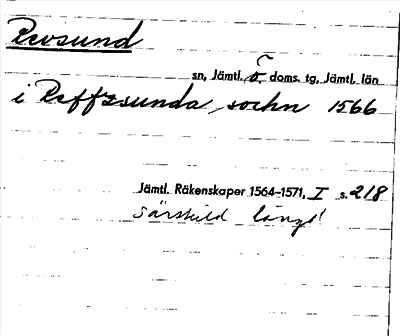 Revsund
sn, Jämtl. ö. doms. tg, Jämtl. län
i Reffssunda sochn 1566
Jämtl. Räkenskaper 1564-1571, I s. 218
Särskild längd